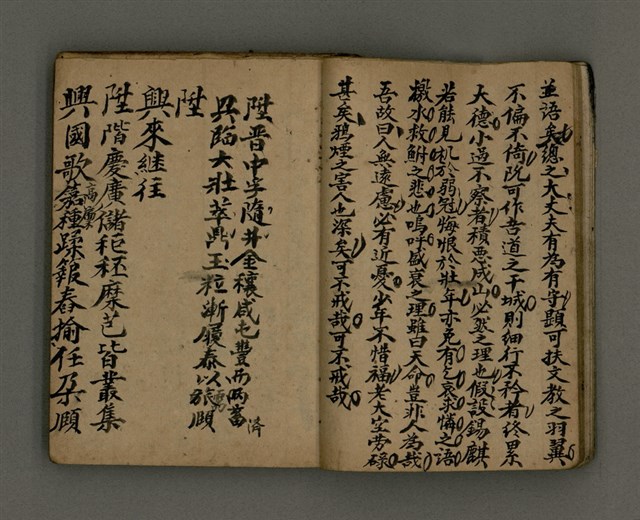 並語矣總之大丈夫有為有守題可扶文教之羽翼
不偏不倚既可作善道之干城則細行不矜者終累
大德小過不察者積惡成山必然之理也假設錫麒
若能見机於弱冠悔恨於壯年亦免有乞哀求憐之語
撥水救鮒之悲也嗚呼盛衰之理雖曰天命豈非人為哉
吾故曰人無遠慮必有近憂少年不惜福老大空勞碌
甚矣鴉煙之害人也深矣可不戒哉可不戒哉
陞晋中孚隨井金穰咸屯豐而兩蓄濟
巽臨大壯萃鼎玉粒漸頤泰以張頤
陞
興來繼往
陞階慶廣儲秬秠穈芑皆叢集
興國歌嘉種蹂報春揄任朶頤
高廩